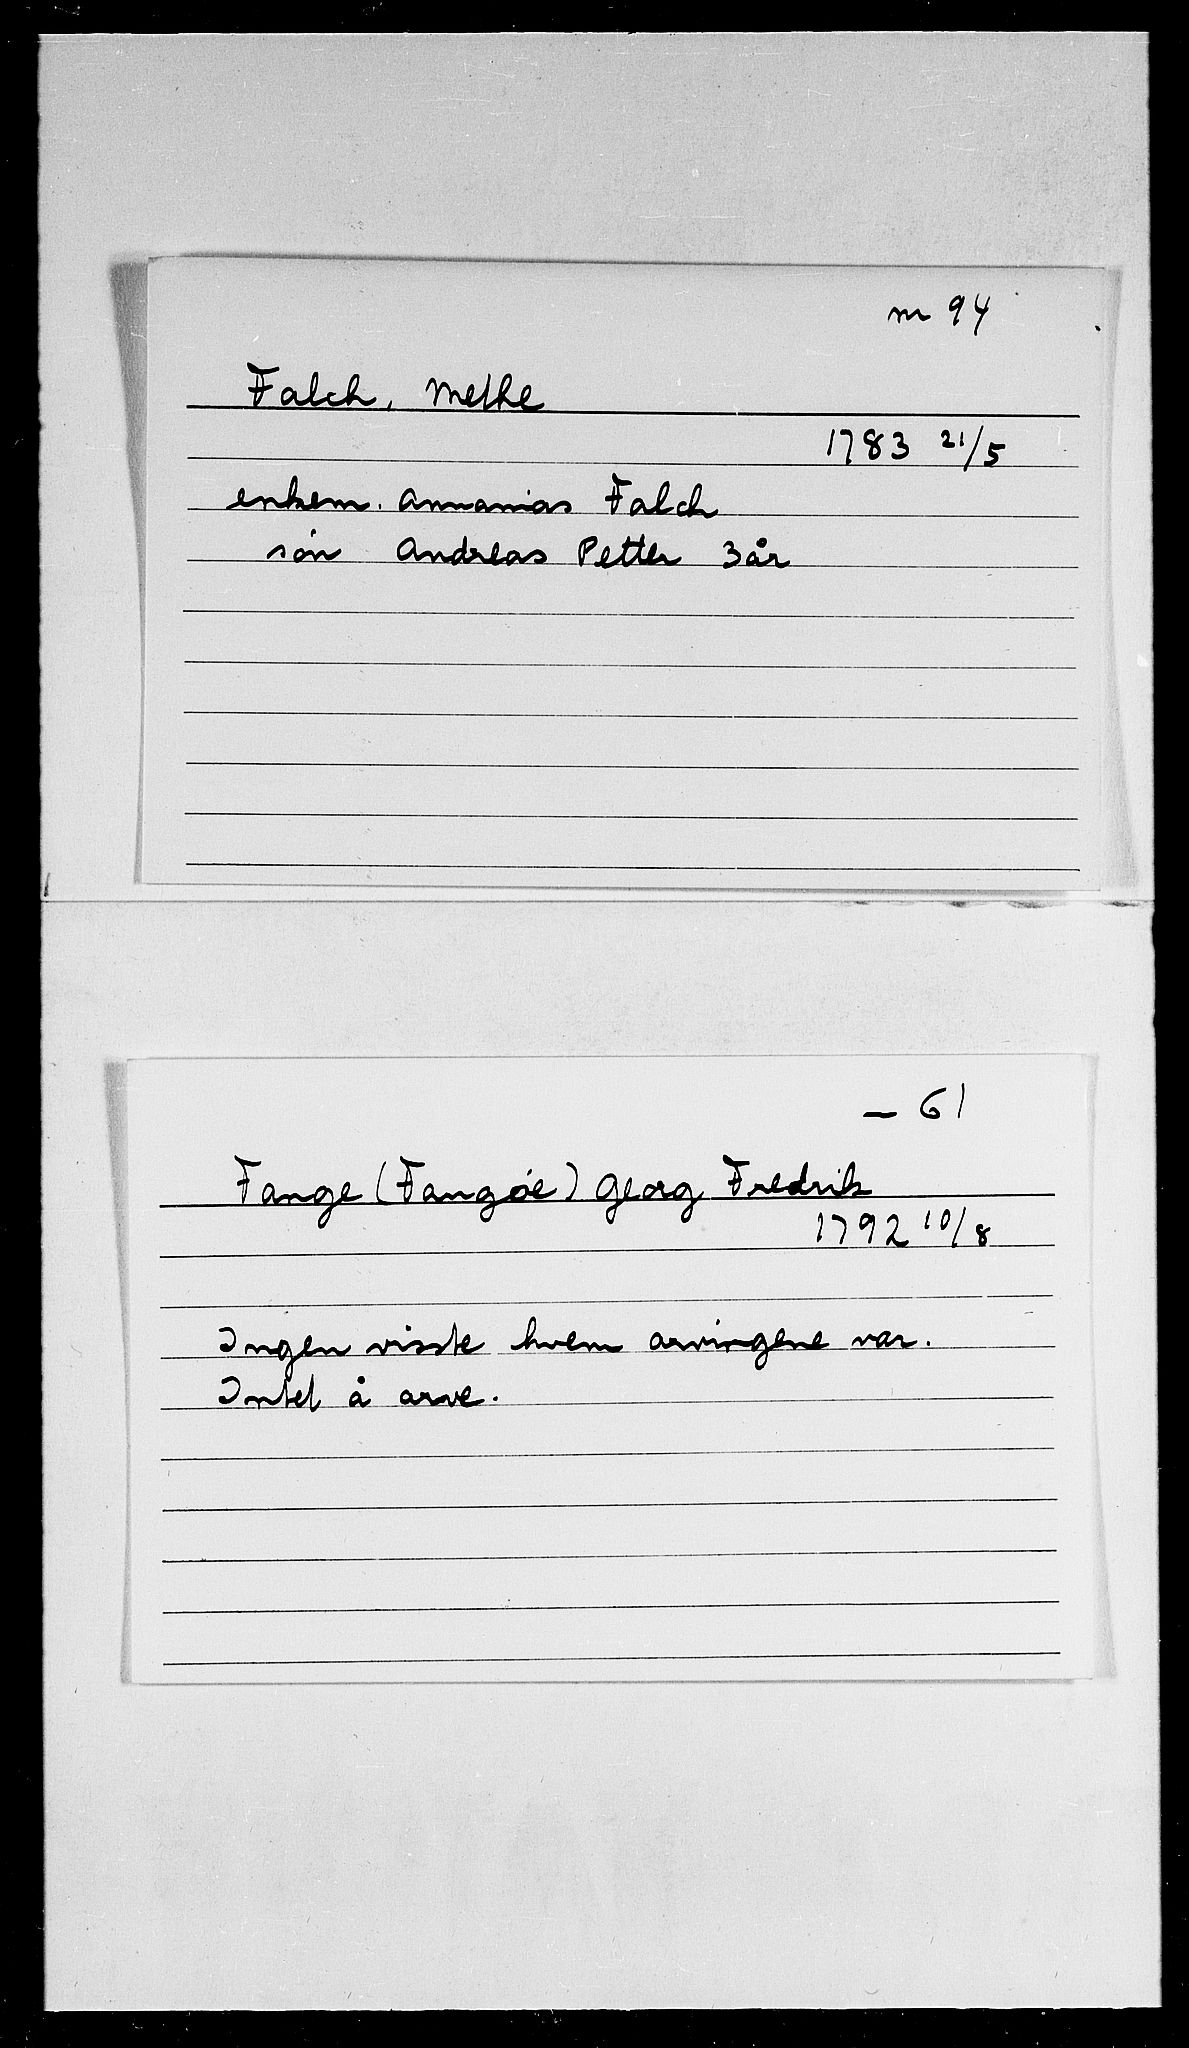 m 94
Falch, Methe
1783 21/5
enkem. Annanias Falch
søn Andreas Petter 3 år
— 61
Fange (Fangøe) Georg Fredrik
1792 10/8
Ingen visste hvem arvingene var.
Intet å arve.